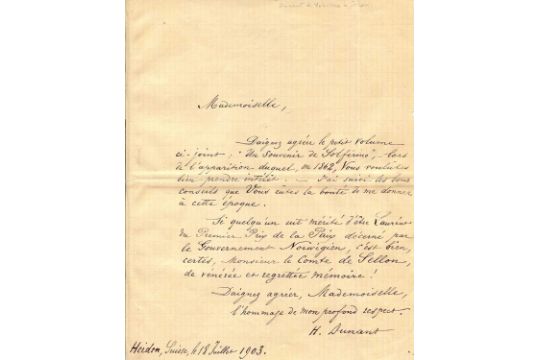 Mademoiselle,
Daignez agréer le petit volume
ci-joint, "Un Souvenir de Solférino", lors
de l'apparition duquel, en 1862, Vous voulûtes
bien prendre intérêt. — J'ai suivi les bons
conseils que Vous eûtes la bonté de me donner
à cette époque.
Si quelqu'un eut mérité d'être Lauréat
du Premier Prix de la Paix décerné par
le Gouvernement Norwégien, c'est bien,
certes, Monsieur le Comte de Sellon,
de vénérée et regrettée mémoire !
Daignez agréer, Mademoiselle,
l'hommage de mon profond respect.
H. Dunant
Heiden, Suisse, le 18 Juillet 1903.